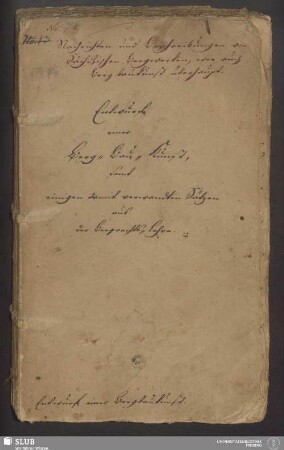 Nachrichten und Beschreibungen von
Sächsischen Bergwerken, wie auch
Bergbaukunst überhaupt.
Entwurf
einer
Berg-Bau-Kunst,
samt
einigen damit verwandten Sätzen
aus
der Bergrechts-Lehre.
Entwurf einer Bergbaukunst.
SLUB
Wir führen Wissen.
UNIVERSITÄTSBIBLIOTHEK
FREIBERG